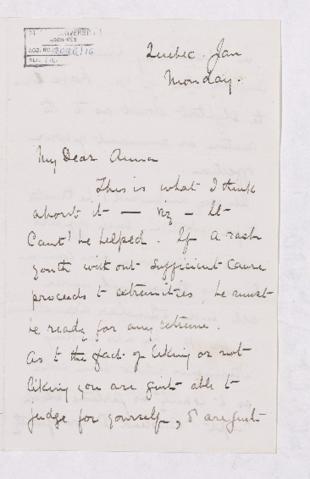 Quebec. Jan
Monday.
My Dear Anna
This is what I think
about it — viz — It
Can't be helped. If a rash
youth without sufficient cause
proceeds to extremities, he must
be ready for any extreme.
As to the fact of liking or not
liking you are quite able to
judge for yourself, & are just